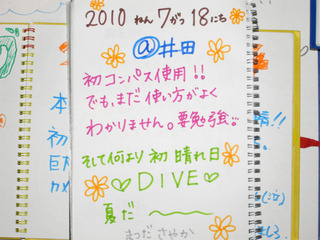 2010 ねん 7がつ 18にち
@井田
初コンパス使用!!
でも、まだ使い方がよく
わかりません。要勉強…
そして何より 初 晴れ日
♡DIVE♡
夏だ 〜〜〜
まつだ さやか
本
初